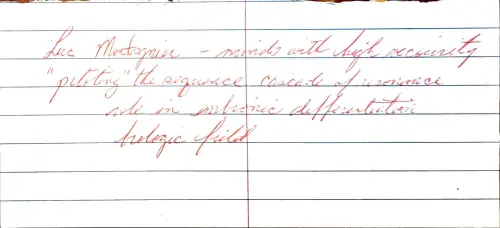 Luc Montagnier - minds with high security
"piloting" the sequence cascade of resonance
role in embryonic differentiation
biologic field